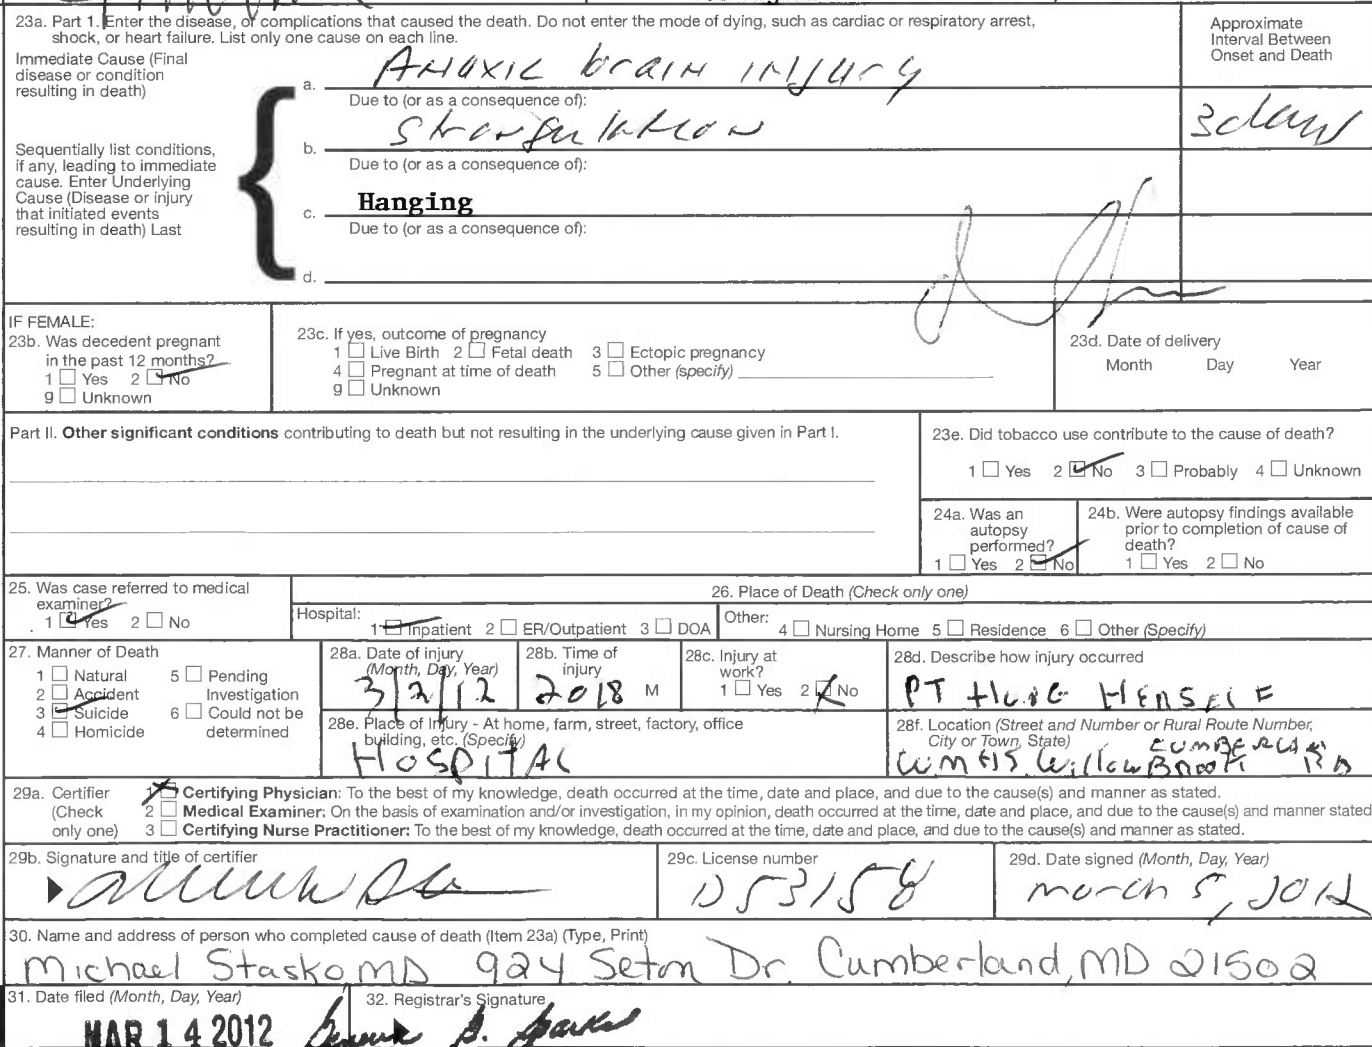 23a. Part 1. Enter the disease, or complications that caused the death. Do not enter the mode of dying, such as cardiac or respiratory arrest,
shock, or heart failure. List only one cause on each line.
Approximate
Interval Between
Onset and Death
Immediate Cause (Final
disease or condition
resulting in death)
a. Anoxic brain injury
Due to (or as a consequence of):
Sequentially list conditions,
if any, leading to immediate
cause. Enter Underlying
Cause (Disease or injury
that initiated events
resulting in death) Last
b. Strangulation
3 days
Due to (or as a consequence of):
c. Hanging
Due to (or as a consequence of):
d.
IF FEMALE:
23b. Was decedent pregnant
in the past 12 months?
1 Yes 2 No
9 Unknown
23c. If yes, outcome of pregnancy
1 Live Birth 2 Fetal death 3 Ectopic pregnancy
4 Pregnant at time of death 5 Other (specify)
9 Unknown
23d. Date of delivery
Month Day Year
Part II. Other significant conditions contributing to death but not resulting in the underlying cause given in Part I.
23e. Did tobacco use contribute to the cause of death?
1 Yes 2 No 3 Probably 4 Unknown
24a. Was an
autopsy
performed?
1 Yes 2 No
24b. Were autopsy findings available
prior to completion of cause of
death?
1 Yes 2 No
25. Was case referred to medical
examiner?
1 Yes 2 No
26. Place of Death (Check only one)
Hospital:
1 Inpatient 2 ER/Outpatient 3 DOA
Other:
4 Nursing Home 5 Residence 6 Other (Specify)
27. Manner of Death
1 Natural 5 Pending
2 Accident Investigation
3 Suicide 6 Could not be
4 Homicide determined
28a. Date of injury
(Month, Day, Year)
3/2/12
28b. Time of
injury
2018 M
28c. Injury at
work?
1 Yes 2 No
28d. Describe how injury occurred
PT HUNG HERSELF
28e. Place of Injury - At home, farm, street, factory, office
building, etc. (Specify)
HOSPITAL
28f. Location (Street and Number or Rural Route Number,
City or Town, State)
WMHS Willowbrook
29a. Certifier
(Check
only one)
1 Certifying Physician: To the best of my knowledge, death occurred at the time, date and place, and due to the cause(s) and manner as stated.
2 Medical Examiner: On the basis of examination and/or investigation, in my opinion, death occurred at the time, date and place, and due to the cause(s) and manner stated
3 Certifying Nurse Practitioner: To the best of my knowledge, death occurred at the time, date and place, and due to the cause(s) and manner as stated.
29b. Signature and title of certifier
29c. License number
D53158
29d. Date signed (Month, Day, Year)
March 5, 2012
30. Name and address of person who completed cause of death (Item 23a) (Type, Print)
Michael Stasko, MD 924 Seton Dr. Cumberland, MD 21502
31. Date filed (Month, Day, Year)
MAR 14 2012
32. Registrar's Signature